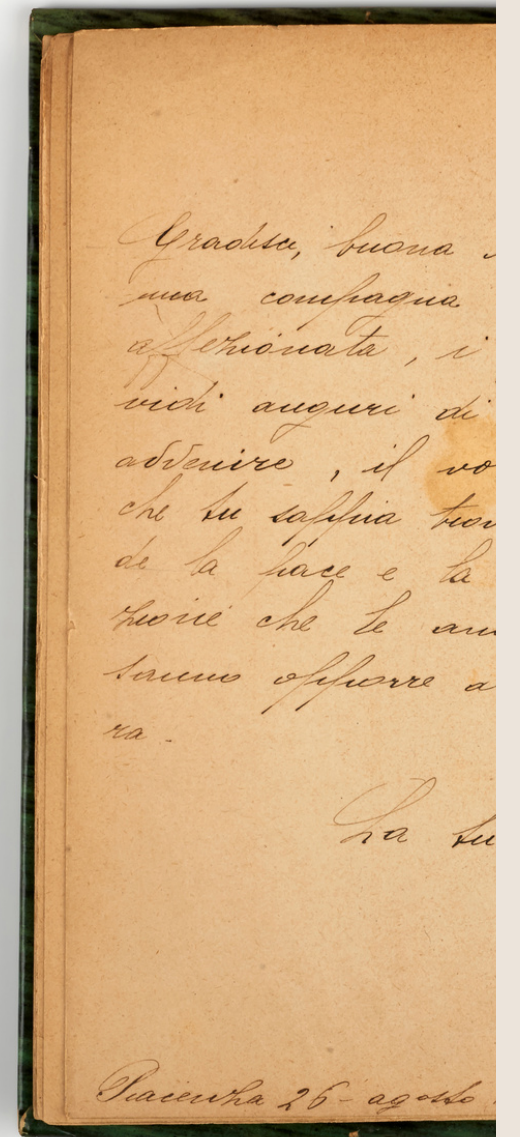 Gradisci, buona
una compagna
affezionata, i
vidi auguri di
avvenire, il vo
che tu sappia trov
de la pace e la
zione che le ani
sanno opporre a
ra.
La tu
Piacenza 26 - agosto